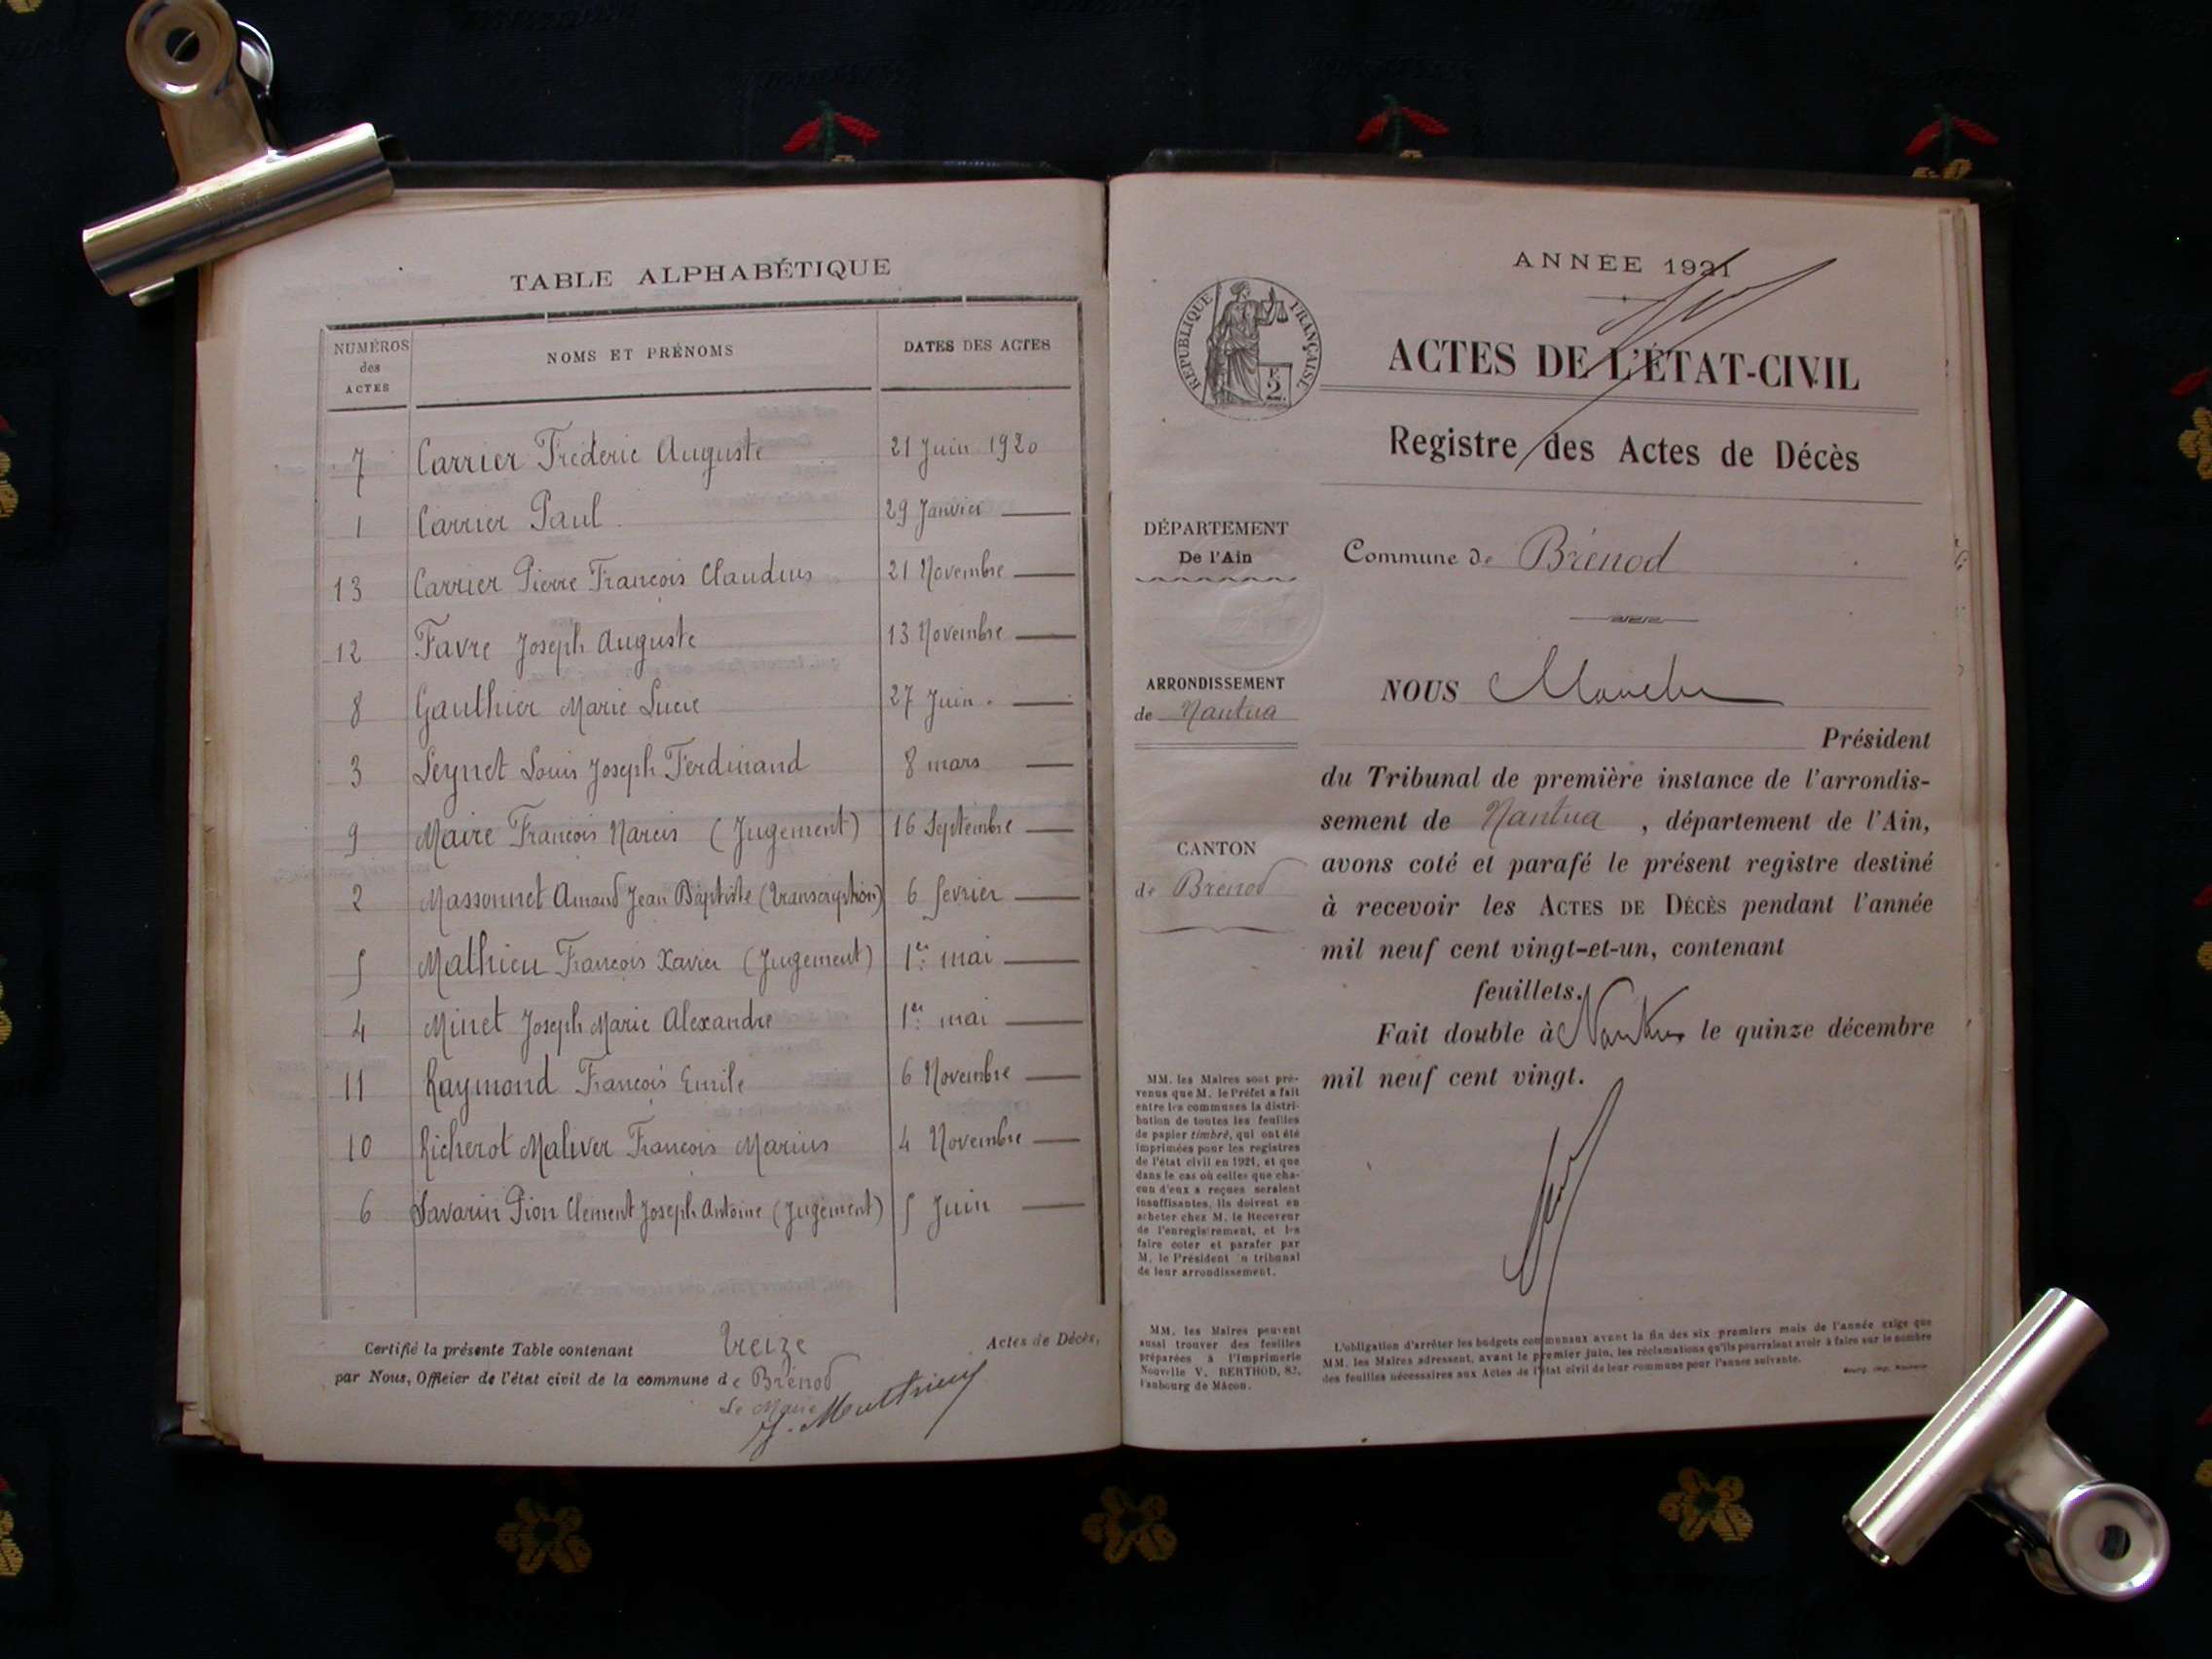 TABLE ALPHABÉTIQUE
NUMÉROS des ACTES NOMS ET PRÉNOMS DATES DES ACTES
7 Carrier Fréderic Auguste 21 Juin 1920
1 Carrier Paul 29 Janvier
13 Carrier Pierre François Claudius 21 Novembre
12 Favre Joseph Auguste 13 Novembre
8 Gauthier Marie Lucie 27 Juin
3 Leynet Louis Joseph Ferdinand 8 mars
9 Maire François Narcis (Jugement) 16 Septembre
2 Massonnet Amand Jean Baptiste (transcription) 6 fevrier
5 Mathieu François Xavier (Jugement) 1er mai
4 Minet Joseph Marie Alexandre 1er mai
11 Raymond François Emile 6 Novembre
10 Richerot Maliver François Marius 4 Novembre
6 Savarin Pion Clement Joseph Antoine (Jugement) 5 Juin
Certifié la présente Table contenant treize Actes de Décès,
par Nous, Officier de l'état civil de la commune de Brénod
Le Maire
ANNÉE 1921
RÉPUBLIQUE FRANÇAISE
ACTES DE L'ÉTAT-CIVIL
Registre des Actes de Décès
DÉPARTEMENT
De l'Ain
Commune de Brénod
ARRONDISSEMENT
de Nantua
CANTON
de Brénod
NOUS
Président
du Tribunal de première instance de l'arrondis-
sement de Nantua, département de l'Ain,
avons coté et parafé le présent registre destiné
à recevoir les ACTES DE DÉCÈS pendant l'année
mil neuf cent vingt-et-un, contenant
feuillets.
Fait double à Nantua le quinze décembre
mil neuf cent vingt.
MM. les Maires sont pré-
venus que M. le Préfet a fait
entre les communes la distri-
bution de toutes les feuilles
de papier timbré, qui ont été
imprimées pour les registres
de l'état civil en 1921, et que
dans le cas où celles que cha-
cun d'eux a reçues seraient
insuffisantes, ils doivent en
acheter chez M. le Receveur
de l'enregistrement, et les
faire coter et parafer par
M. le Président du tribunal
de leur arrondissement.
MM. les Maires peuvent
aussi trouver des feuilles
préparées à l'Imprimerie
Nouvelle V. BERTHOD, 82,
Faubourg de Mâcon.
L'obligation d'arrêter les budgets communaux avant la fin des six premiers mois de l'année exige que
MM. les Maires adressent, avant le premier juin, les réclamations qu'ils pourraient avoir à faire sur le nombre
des feuilles nécessaires aux Actes de l'état civil de leur commune pour l'année suivante.